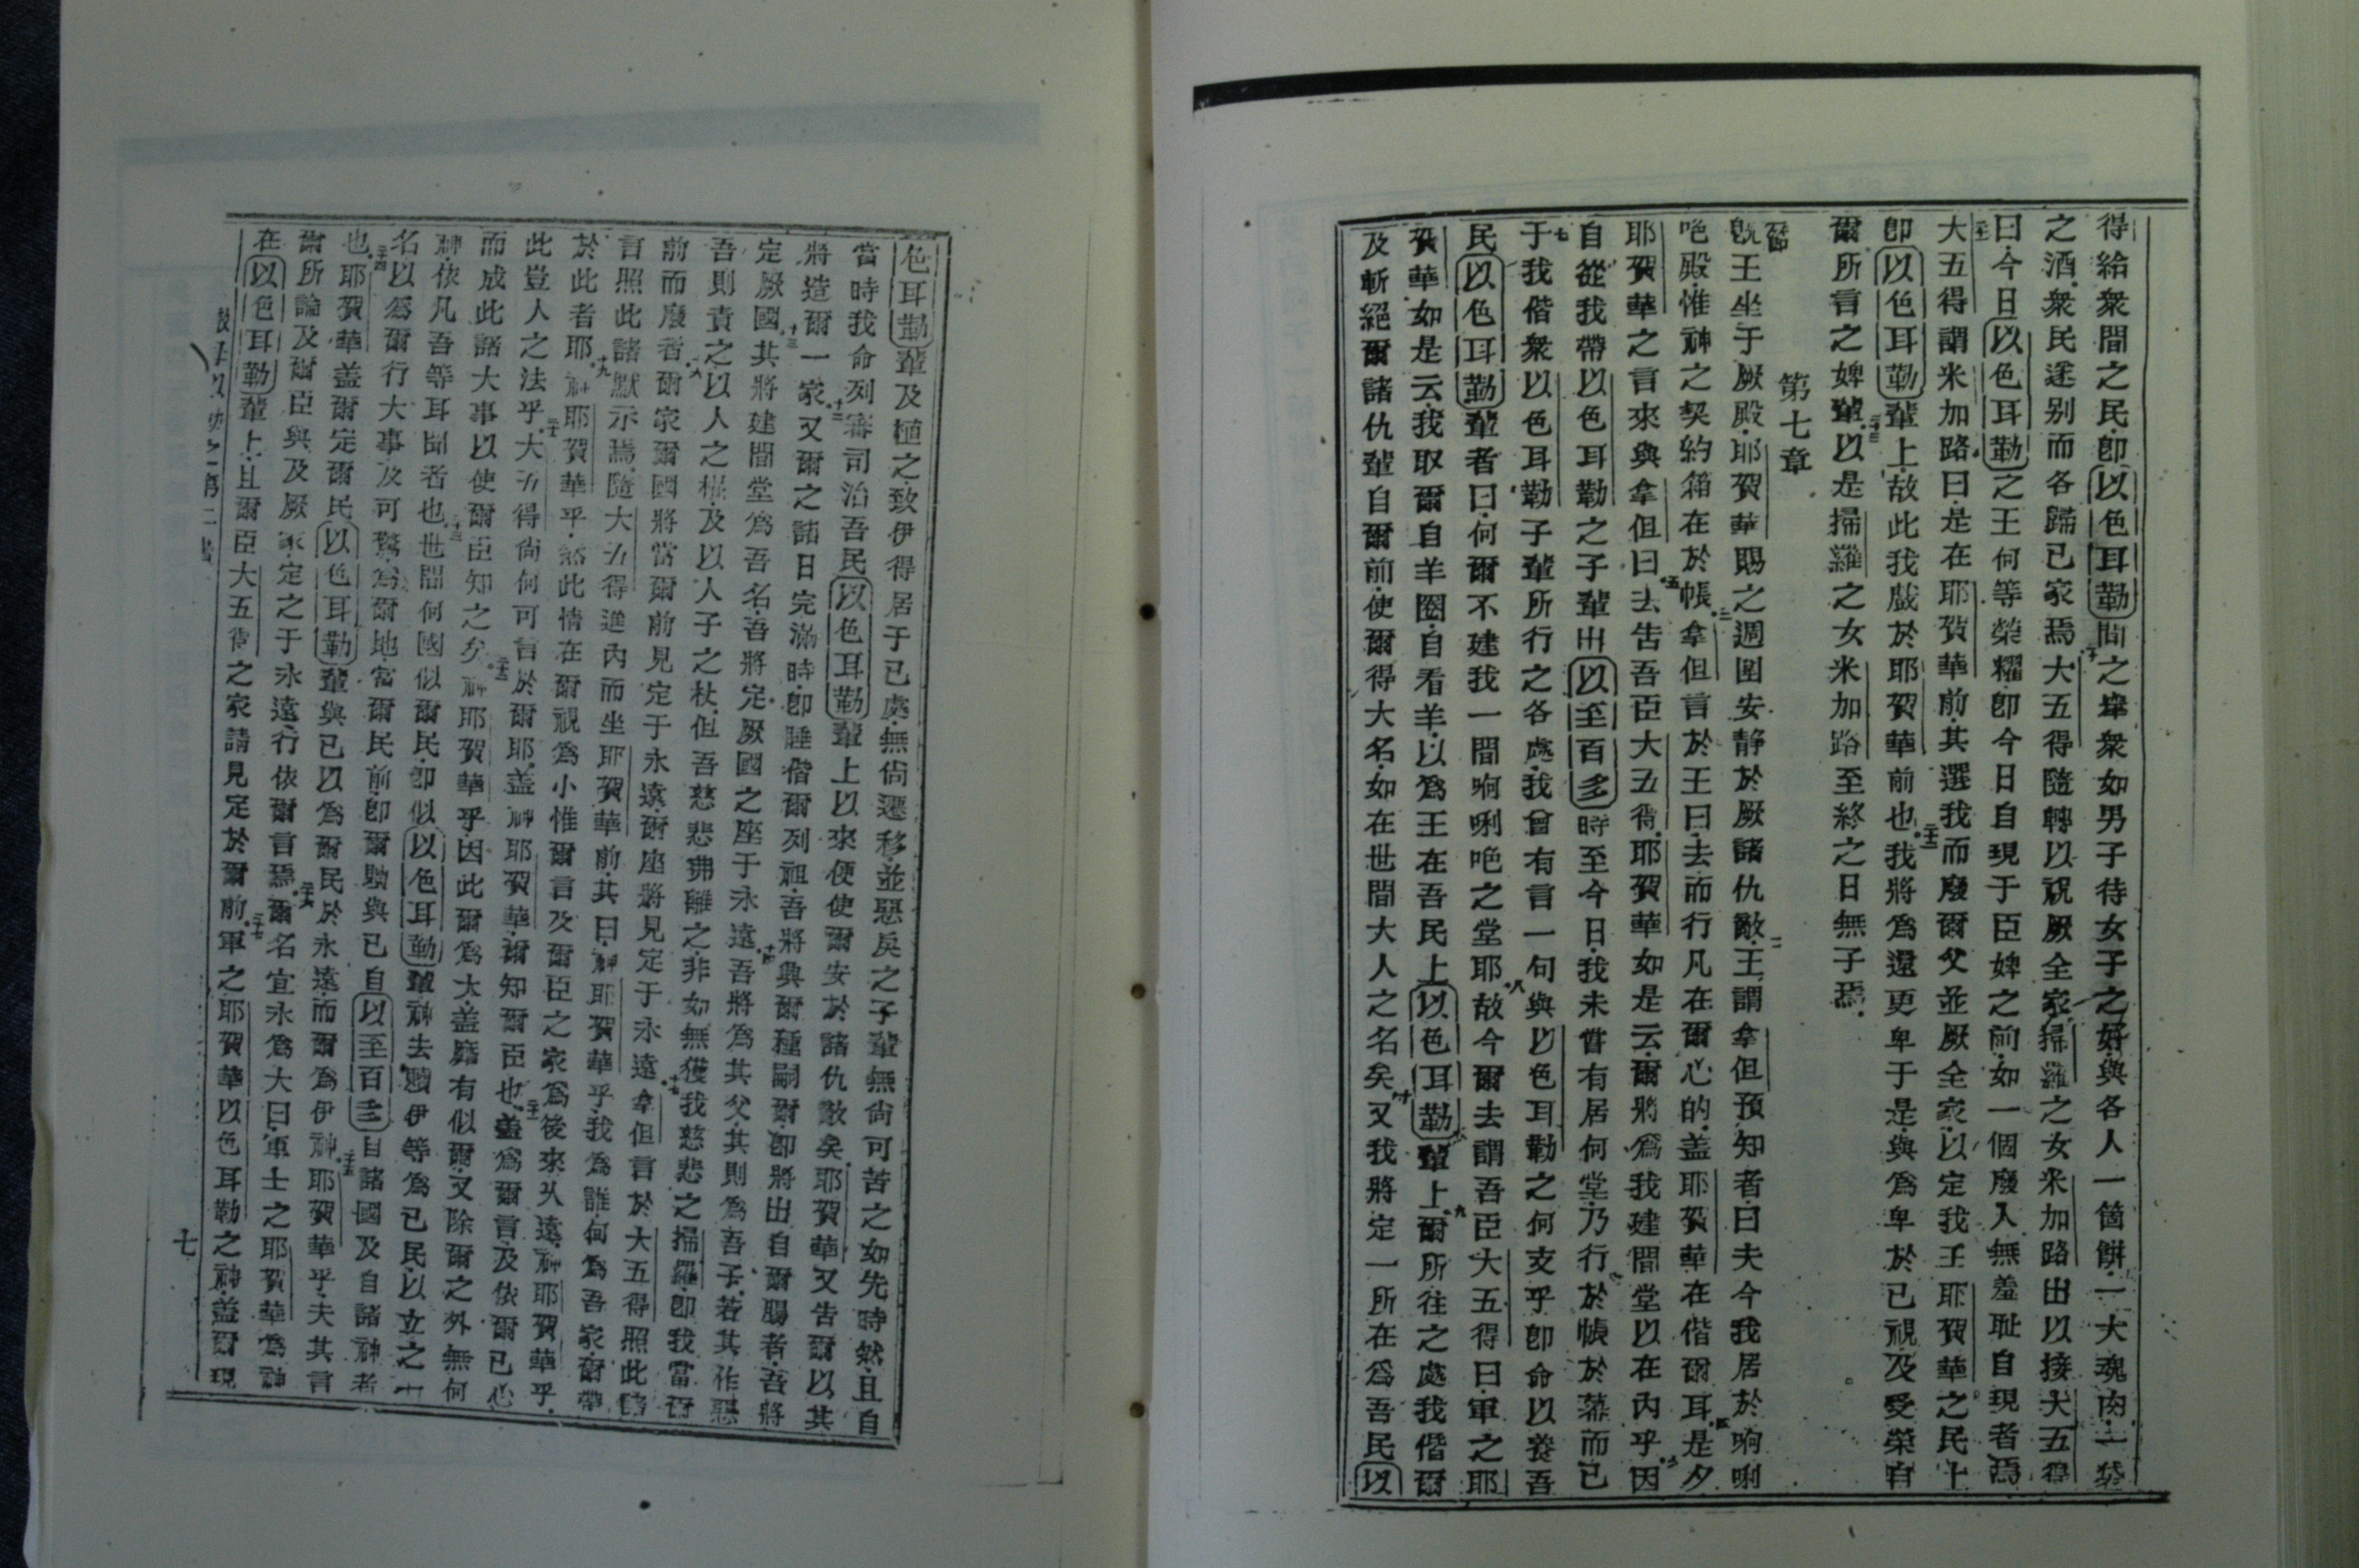 得給衆間之民卽以色耳勒間之羣衆如男子待女子之好與各人一箇餅一大塊肉一
之酒衆民遂别而各歸已家焉二十大五得隨轉以祝厥全家掃羅之女米加路出以接大五得
曰今日以色耳勒之王何等榮耀卽今日自現于臣婢之前如一個廢人無羞耻自現者焉
二十一大五得謂米加路曰是在耶賀華前其選我而廢爾父並厥全家以定我王耶賀華之民上
卽以色耳勒輩上故此我戲於耶賀華前也二十二我將爲還更卑于是與爲卑於已視及受榮自
爾所言之婢輩二十三以是掃羅之女米加路至終之日無子焉
第七章
旣王坐于厥殿耶賀華賜之週圍安静於厥諸仇敵二王謂拿但預知者曰夫今我居於啊唎
吧殿惟神之契約箱在於帳三拿但言於王曰去而行凡在爾心的盖耶賀華在偕爾耳四是夕
耶賀華之言來與拿但曰五去告吾臣大五得耶賀華如是云爾將爲我建間堂以在內乎六因
自從我帶以色耳勒之子輩出以至百多時至今日我未嘗有居何堂乃行於帳於幕而已
七于我偕衆以色耳勒子輩所行之各處我曾有言一句與以色耳勒之何支乎卽命以養吾
民以色耳勒輩者曰何爾不建我一間啊唎吧之堂耶八故今爾去謂吾臣大五得曰軍之耶
賀華如是云我取爾自羊圈自看羊以爲王在吾民上以色耳勒輩上九爾所往之處我偕爾
及斬絕爾諸仇輩自爾前使爾得大名如在世間大人之名矣十又我將定一所在爲吾民以
色耳勒輩及植之致伊得居于已處無尙遷移並惡戾之子輩無尙可苦之如先時然十一且自
當時我命列審司治吾民以色耳勒輩上以來便使爾安於諸仇敵矣耶賀華又告爾以其
將造爾一家十二又爾之諸日完滿時卽睡偕爾列祖吾將興爾種嗣爾卽將出自爾腸者吾將
定厥國十三其將建間堂爲吾名吾將定厥國之座于永遠十四吾將爲其父其則爲吾子若其作惡
吾則責之以人之棍及以人子之杖十五但吾慈悲弗離之非如無獲我慈悲之掃羅卽我當
前而廢者十六爾家爾國將當爾前見定于永遠爾座將見定于永遠十七拿但言於大五得照此諸
言照此諸默示焉十八隨大五得進內而坐耶賀華前其曰神耶賀華乎我爲誰何爲吾家爾帶
於此者耶十九神耶賀華乎然此情在爾視爲小惟爾言及爾臣之家爲後來久遠神耶賀華乎
此豈人之法乎二十大五得尙何可言於爾耶盖神耶賀華爾知爾臣也二十一盖爲爾言及依爾已心
而成此諸大事以使爾臣知之矣二十二神耶賀華乎因此爾爲大盖靡有似爾又除爾之外無何
神依凡吾等耳聞者也二十三世間何國似爾民卽似以色耳勒輩神去贖伊等爲已民以立之
名以爲爾行大事及可驚爲爾地當爾民前卽爾贖與已自以至百多自諸國及自諸神者
也二十四耶賀華盖爾定爾民以色耳勒輩與已以爲爾民於永遠而爾爲伊神二十五耶賀華乎夫其言
爾所論及爾臣與及厥家定之于永遠行依爾言焉二十六爾名宜永爲大曰軍士之耶賀華爲神
在以色耳勒輩上且爾臣大五得之家請見定於爾前二十七軍之耶賀華以色耳勒之神盖爾現
之第二書
七